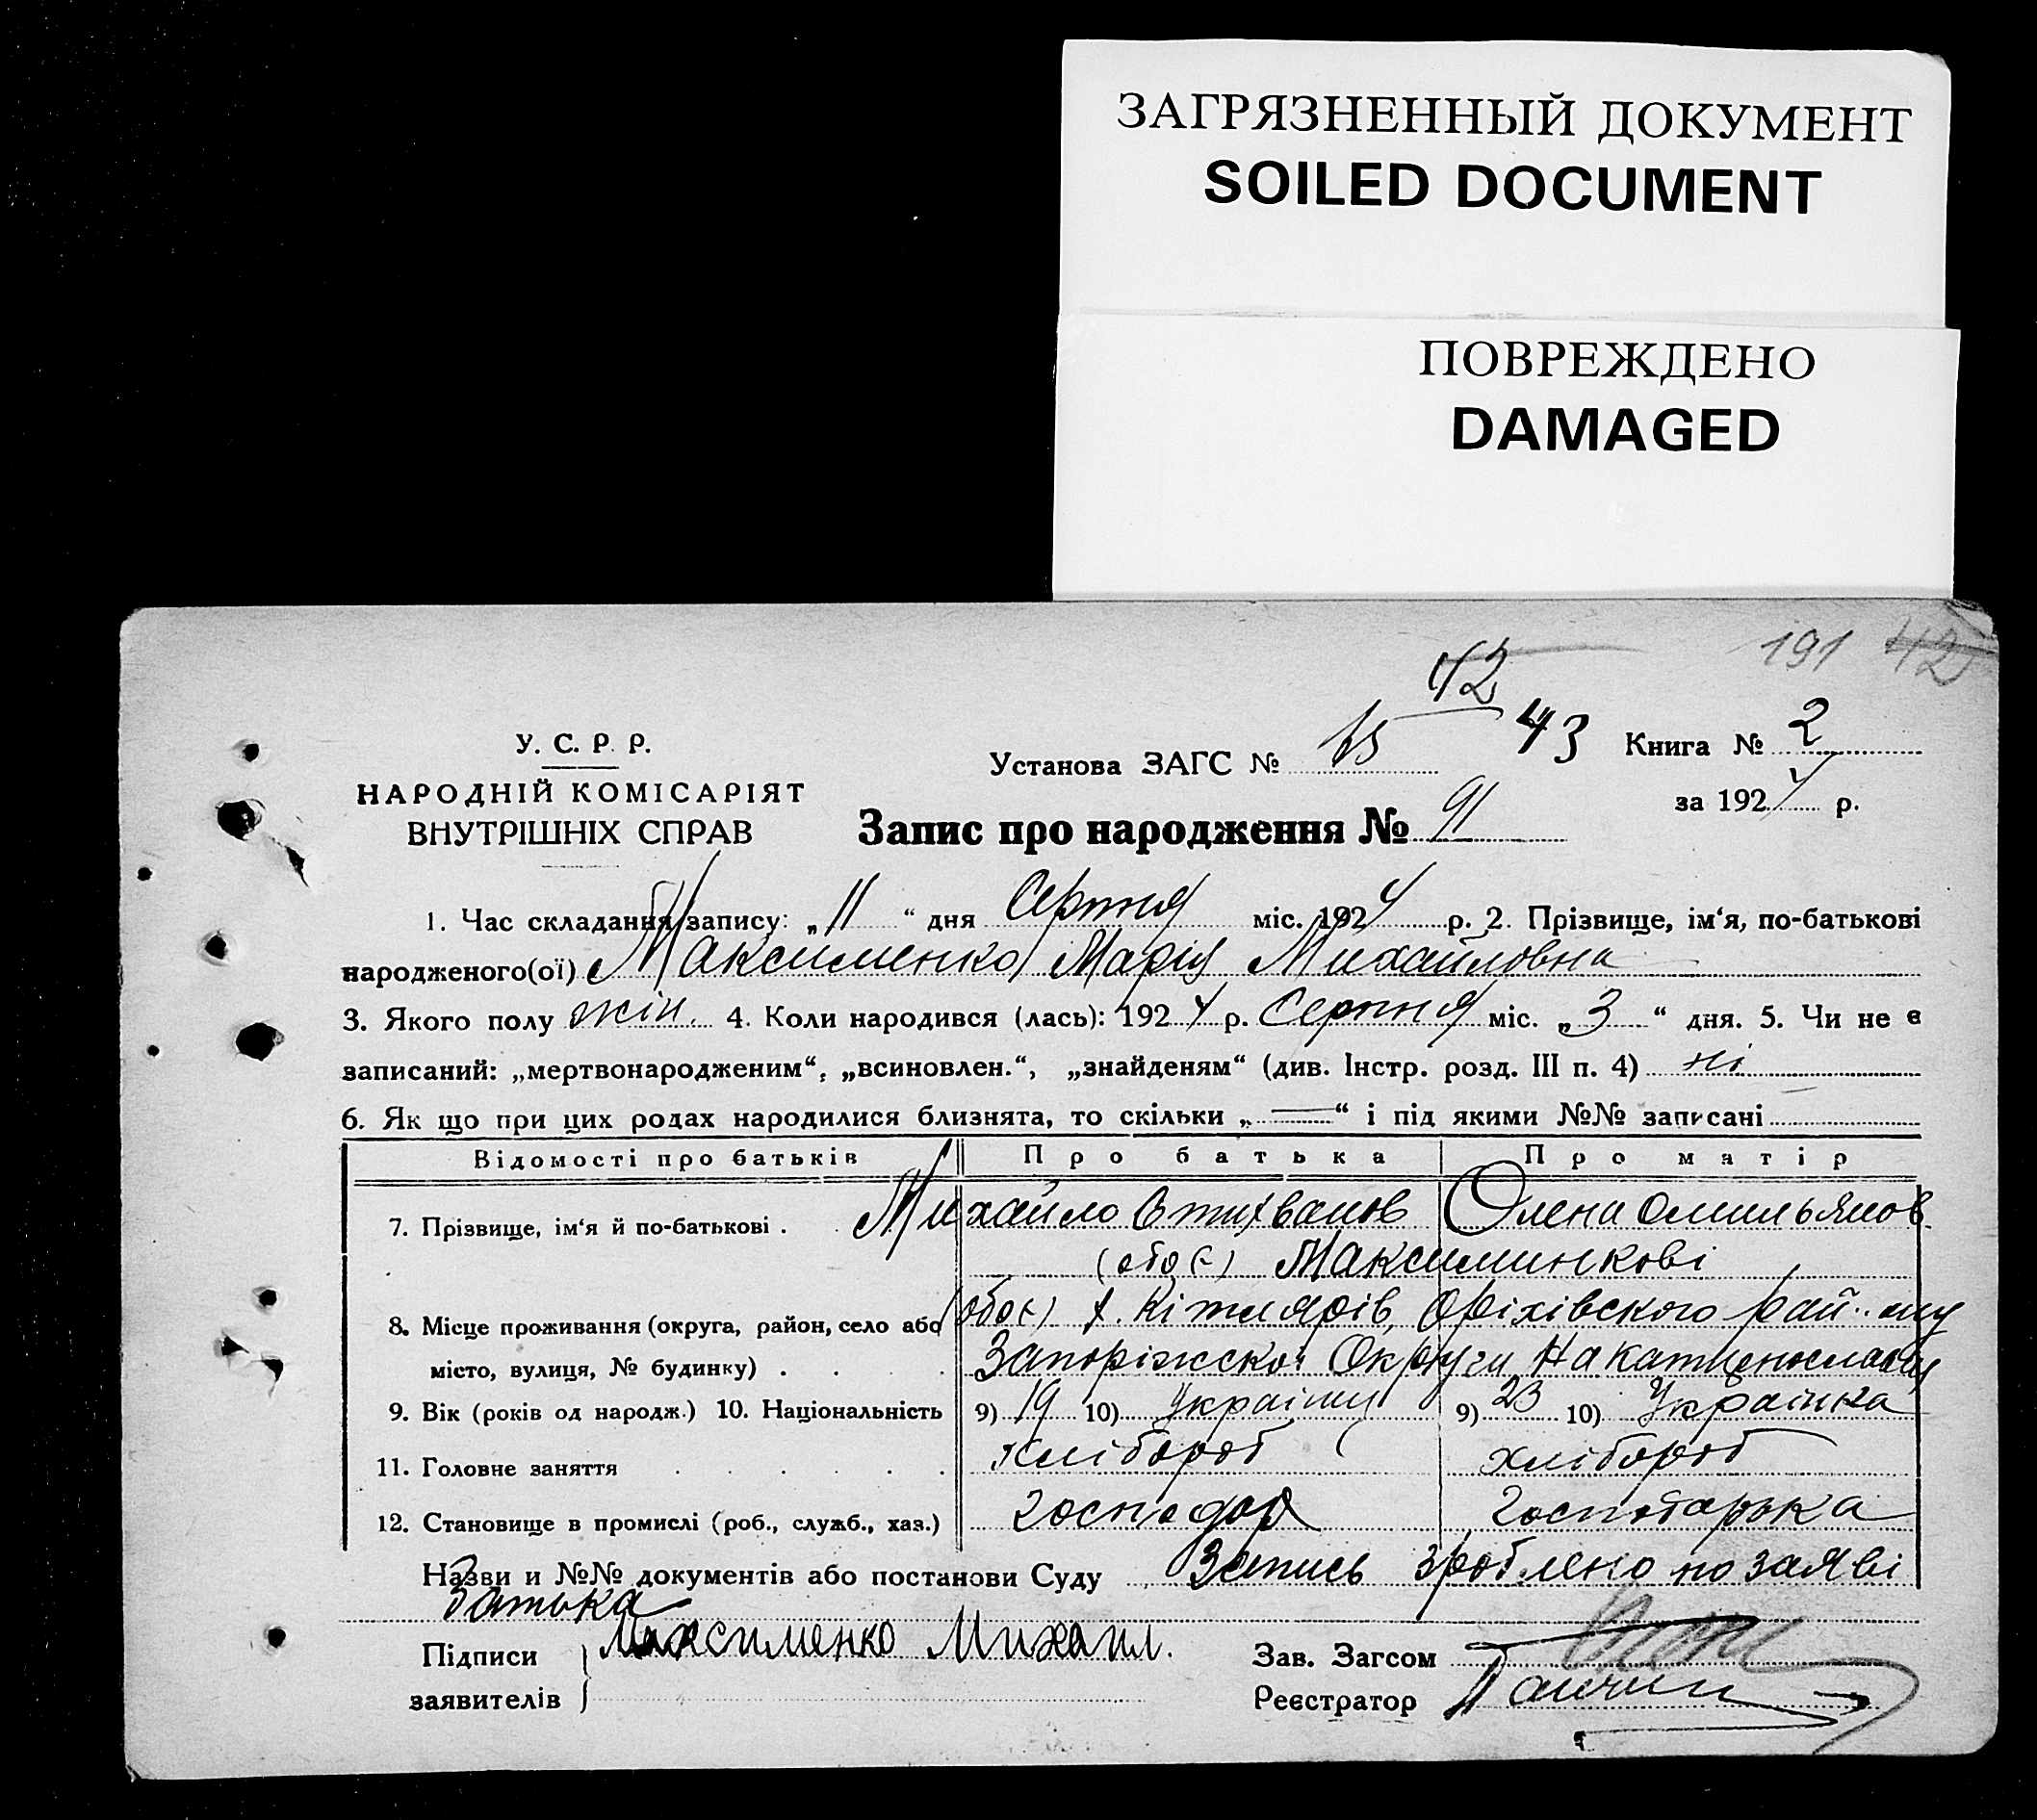 ЗАГРЯЗНЕННЫЙ ДОКУМЕНТ
SOILED DOCUMENT
ПОВРЕЖДЕНО
DAMAGED
191 42
42
У. С. Р. Р.
НАРОДНІЙ КОМІСАРІЯТ
ВНУТРІШНІХ СПРАВ
Установа ЗАГС № 43 Книга № 2
за 1924 р.
Запис про народження № 91
1. Час складання запису: „11“ дня Серпня міс. 1924 р. 2. Прізвище, ім‘я, по-батькові
народженого(ої) Максименко Марія Михайловна
3. Якого полу жін. 4. Коли народився (лась): 1924 р. Серпня міс. „3“ дня. 5. Чи не є
записаний: „мертвонародженим“, „всиновлен.“, „знайденям“ (див. Інстр. розд. III п. 4) ні
6. Як що при цих родах народилися близнята, то скільки „—“ і під якими №№ записані
Відомості про батьків Про батька Про матір
7. Прізвище, ім‘я й по-батькові . Михайло Олена Омильянов
(обоє) Максиминкові
8. Місце проживання (округа, район, село або (обоє) х. Оріхівського рай..
місто, вулиця, № будинку) . . . . Запоріжскоі Округи На
9. Вік (років од народж.) 10. Національність 9) 19 10) Українец 9) 23 10) Українка
11. Головне заняття . . . . . . хлібороб хлібороб
12. Становище в промислі (роб., служб., хаз.) господар господарька
Назви и №№ документів або постанови Суду Запись зроблено по заяві
Батька
Підписи Максименко Михаил.
заявителів
Зав. Загсом
Реєстратор